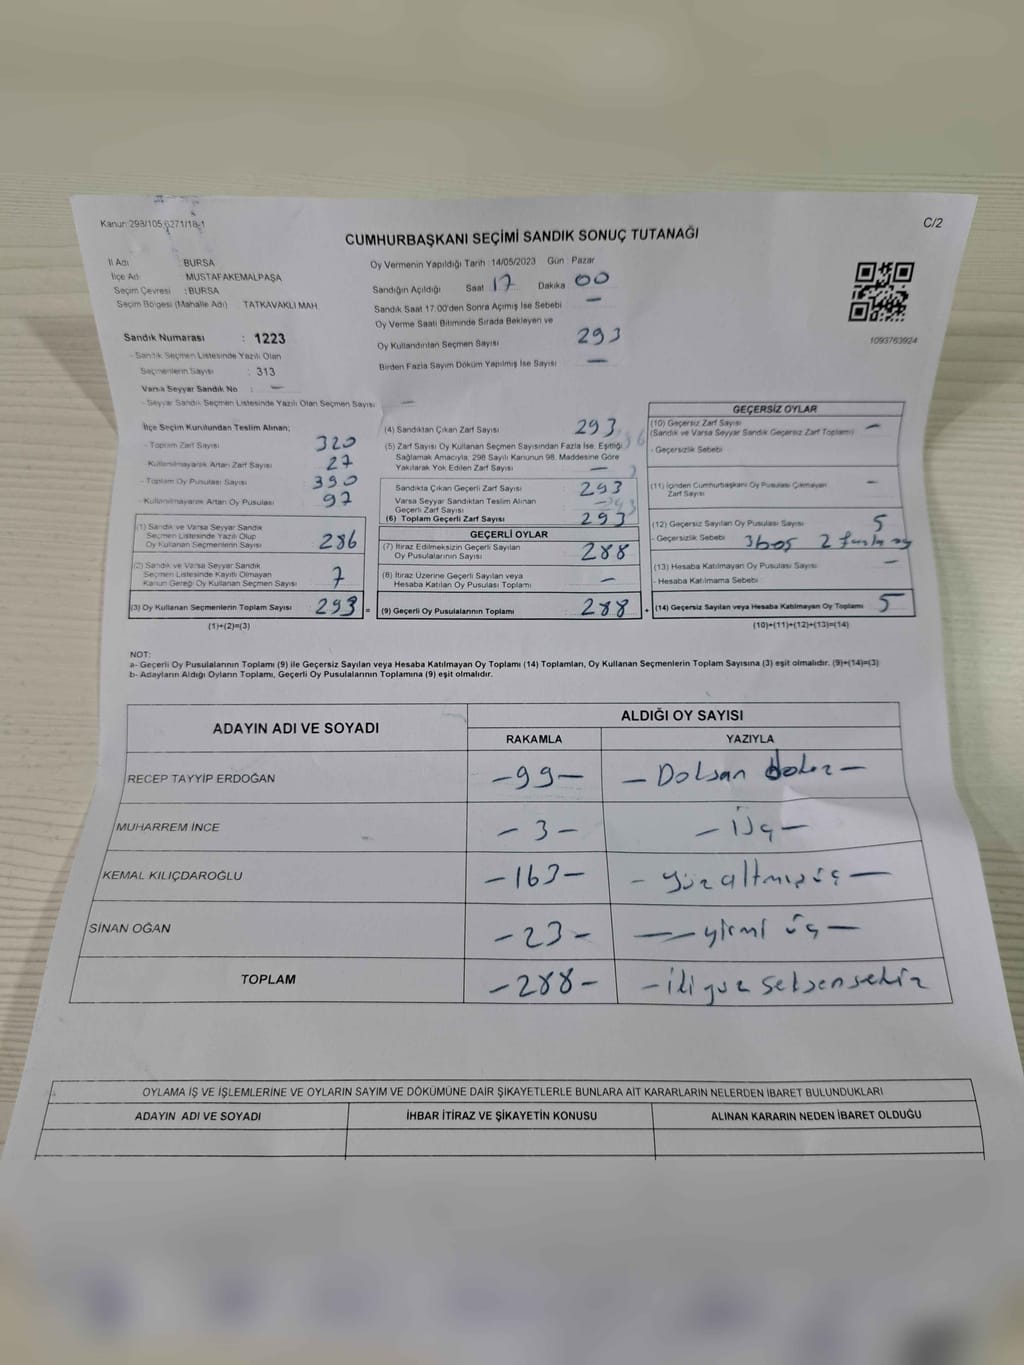 Kanun: 298/105,6271/18-1
C/2
CUMHURBAŞKANI SEÇİMİ SANDIK SONUÇ TUTANAĞI
İl Adı : BURSA
İlçe Adı : MUSTAFAKEMALPAŞA
Seçim Çevresi : BURSA
Seçim Bölgesi (Mahalle Adı) TATKAVAKLI MAH.
Oy Vermenin Yapıldığı Tarih : 14/05/2023 Gün : Pazar
Sandığın Açıldığı Saat 17 Dakika 00
Sandık Saat 17.00'den Sonra Açılmış İse Sebebi —
Oy Verme Saati Bitiminde Sırada Bekleyen ve
Oy Kullandırılan Seçmen Sayısı 293
Birden Fazla Sayım Döküm Yapılmış İse Sayısı —
1093763924
Sandık Numarası : 1223
- Sandık Seçmen Listesinde Yazılı Olan
Seçmenlerin Sayısı : 313
Varsa Seyyar Sandık No : —
- Seyyar Sandık Seçmen Listesinde Yazılı Olan Seçmen Sayısı : —
İlçe Seçim Kurulundan Teslim Alınan;
- Toplam Zarf Sayısı 320
- Kullanılmayarak Artan Zarf Sayısı 27
- Toplam Oy Pusulası Sayısı 390
- Kullanılmayarak Artan Oy Pusulası 97
(1) Sandık ve Varsa Seyyar Sandık
Seçmen Listesinde Yazılı Olup
Oy Kullanan Seçmenlerin Sayısı 286
(2) Sandık ve Varsa Seyyar Sandık
Seçmen Listesinde Kayıtlı Olmayan
Kanun Gereği Oy Kullanan Seçmen Sayısı 7
(3) Oy Kullanan Seçmenlerin Toplam Sayısı 293 =
(1)+(2)=(3)
(4) Sandıktan Çıkan Zarf Sayısı 293
(5) Zarf Sayısı Oy Kullanan Seçmen Sayısından Fazla İse, Eşitliği
Sağlamak Amacıyla, 298 Sayılı Kanunun 98. Maddesine Göre
Yakılarak Yok Edilen Zarf Sayısı —
Sandıkta Çıkan Geçerli Zarf Sayısı : 293
Varsa Seyyar Sandıktan Teslim Alınan
Geçerli Zarf Sayısı :
(6) Toplam Geçerli Zarf Sayısı : 293
GEÇERLİ OYLAR
(7) İtiraz Edilmeksizin Geçerli Sayılan
Oy Pusulalarının Sayısı : 288
(8) İtiraz Üzerine Geçerli Sayılan veya
Hesaba Katılan Oy Pusulası Toplamı : —
(9) Geçerli Oy Pusulalarının Toplamı : 288 +
GEÇERSİZ OYLAR
(10) Geçersiz Zarf Sayısı
(Sandık ve Varsa Seyyar Sandık Geçersiz Zarf Toplamı) —
- Geçersizlik Sebebi :
(11) İçinden Cumhurbaşkanı Oy Pusulası Çıkmayan
Zarf Sayısı —
(12) Geçersiz Sayılan Oy Pusulası Sayısı : 5
- Geçersizlik Sebebi : 3boş 2 fazla oy
(13) Hesaba Katılmayan Oy Pusulası Sayısı : —
- Hesaba Katılmama Sebebi :
(14) Geçersiz Sayılan veya Hesaba Katılmayan Oy Toplamı 5
(10)+(11)+(12)+(13)=(14)
NOT:
a- Geçerli Oy Pusulalarının Toplamı (9) ile Geçersiz Sayılan veya Hesaba Katılmayan Oy Toplamı (14) Toplamları, Oy Kullanan Seçmenlerin Toplam Sayısına (3) eşit olmalıdır. (9)+(14)=(3)
b- Adayların Aldığı Oyların Toplamı, Geçerli Oy Pusulalarının Toplamına (9) eşit olmalıdır.
ADAYIN ADI VE SOYADI
ALDIĞI OY SAYISI
RAKAMLA YAZIYLA
RECEP TAYYİP ERDOĞAN —99— — Doksan dokuz —
MUHARREM İNCE — 3 — — Üç —
KEMAL KILIÇDAROĞLU —163— — yüzaltmışüç —
SİNAN OĞAN —23— — yirmi üç —
TOPLAM —288— — iki yüz seksensekiz
OYLAMA İŞ VE İŞLEMLERİNE VE OYLARIN SAYIM VE DÖKÜMÜNE DAİR ŞİKAYETLERLE BUNLARA AİT KARARLARIN NELERDEN İBARET BULUNDUKLARI
ADAYIN ADI VE SOYADI İHBAR İTİRAZ VE ŞİKAYETİN KONUSU ALINAN KARARIN NEDEN İBARET OLDUĞU